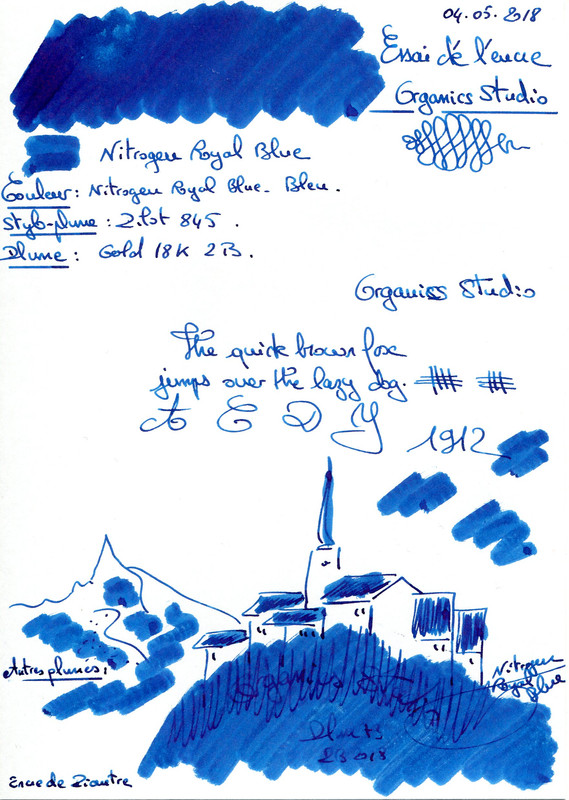 04.05.2018
Essai de l'encre
Organics Studio
Nitrogen Royal Blue
Couleur : Nitrogen Royal Blue - Bleu.
Stylo-plume : Pilot 845.
Plume : Gold 18K 2B.
Organics Studio
The quick brown fox
jumps over the lazy dog.
A E D Y
1912
Autres plumes :
Organics Studio
Nitrogen
Royal
Blue
2018
Encre de